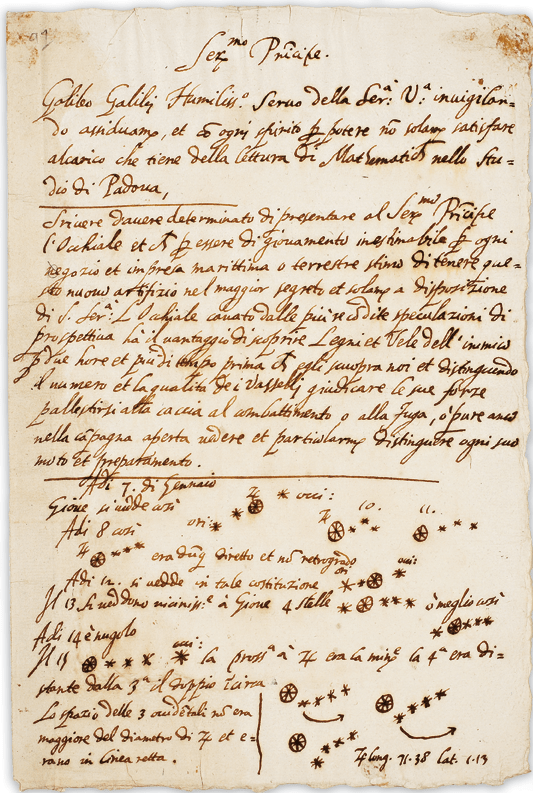 Ser.mo Pricipe.
Galileo Galilei Humiliss.o Servo della Ser.a V.a invigilan-
do assiduam.e, et cō ogni spirito p̱ potere nō solam.e satisfare
alcarico che tiene della lettura di Mathematich nello Stu-
dio di Padova,
Scrivere davere determinato di presentare al Ser.mo Pricipe
l'Occhiale et ch p̱ essere di giovamento inestimabile p̱ ogni
negozio et impresa marittima o terrestre stimo di tenere que-
sto nuovo artifizio nel maggior segreto et solam.e a disposizione
di S. Ser.a L'Occhiale cavato dalle più recōdite speculazioni di
prospettiva ha il vantaggio di scoprire Legni et Vele dell'inimico
p̱ due hore et piu di tempo prima ch egli scuopra noi et distinguendo
il numero et la qualita dei Vasselli giudicare le sue forze
pallestirsi alla caccia al combattimento o alla fuga, o pure anco
nella cāpagna aperta vedere et particolarm.e distinguere ogni suo
moto et preparamento.
Adi 7. di Gennaio
Giove si vedde così ♃ occi:
Adi 8 così ori: ♃ 10. 11.
♃ era dūq diretto et nō retrogrado
Adi 12. si vedde in tale costituzione ori occi:
Il 13 si veddono viciniss.e à Giove 4 stelle ò meglio così
Adi 14 è nugolo
Il 15 occi: la pross.a à ♃ era la min.e la 4.a era di-
stante dalla 3.a il doppio icirca
Lo spazio delle 3 occidētali nō era
maggiore del diametro di ♃ et e-
rano in linea retta.
♃ long. 71.38 lat. 1.13